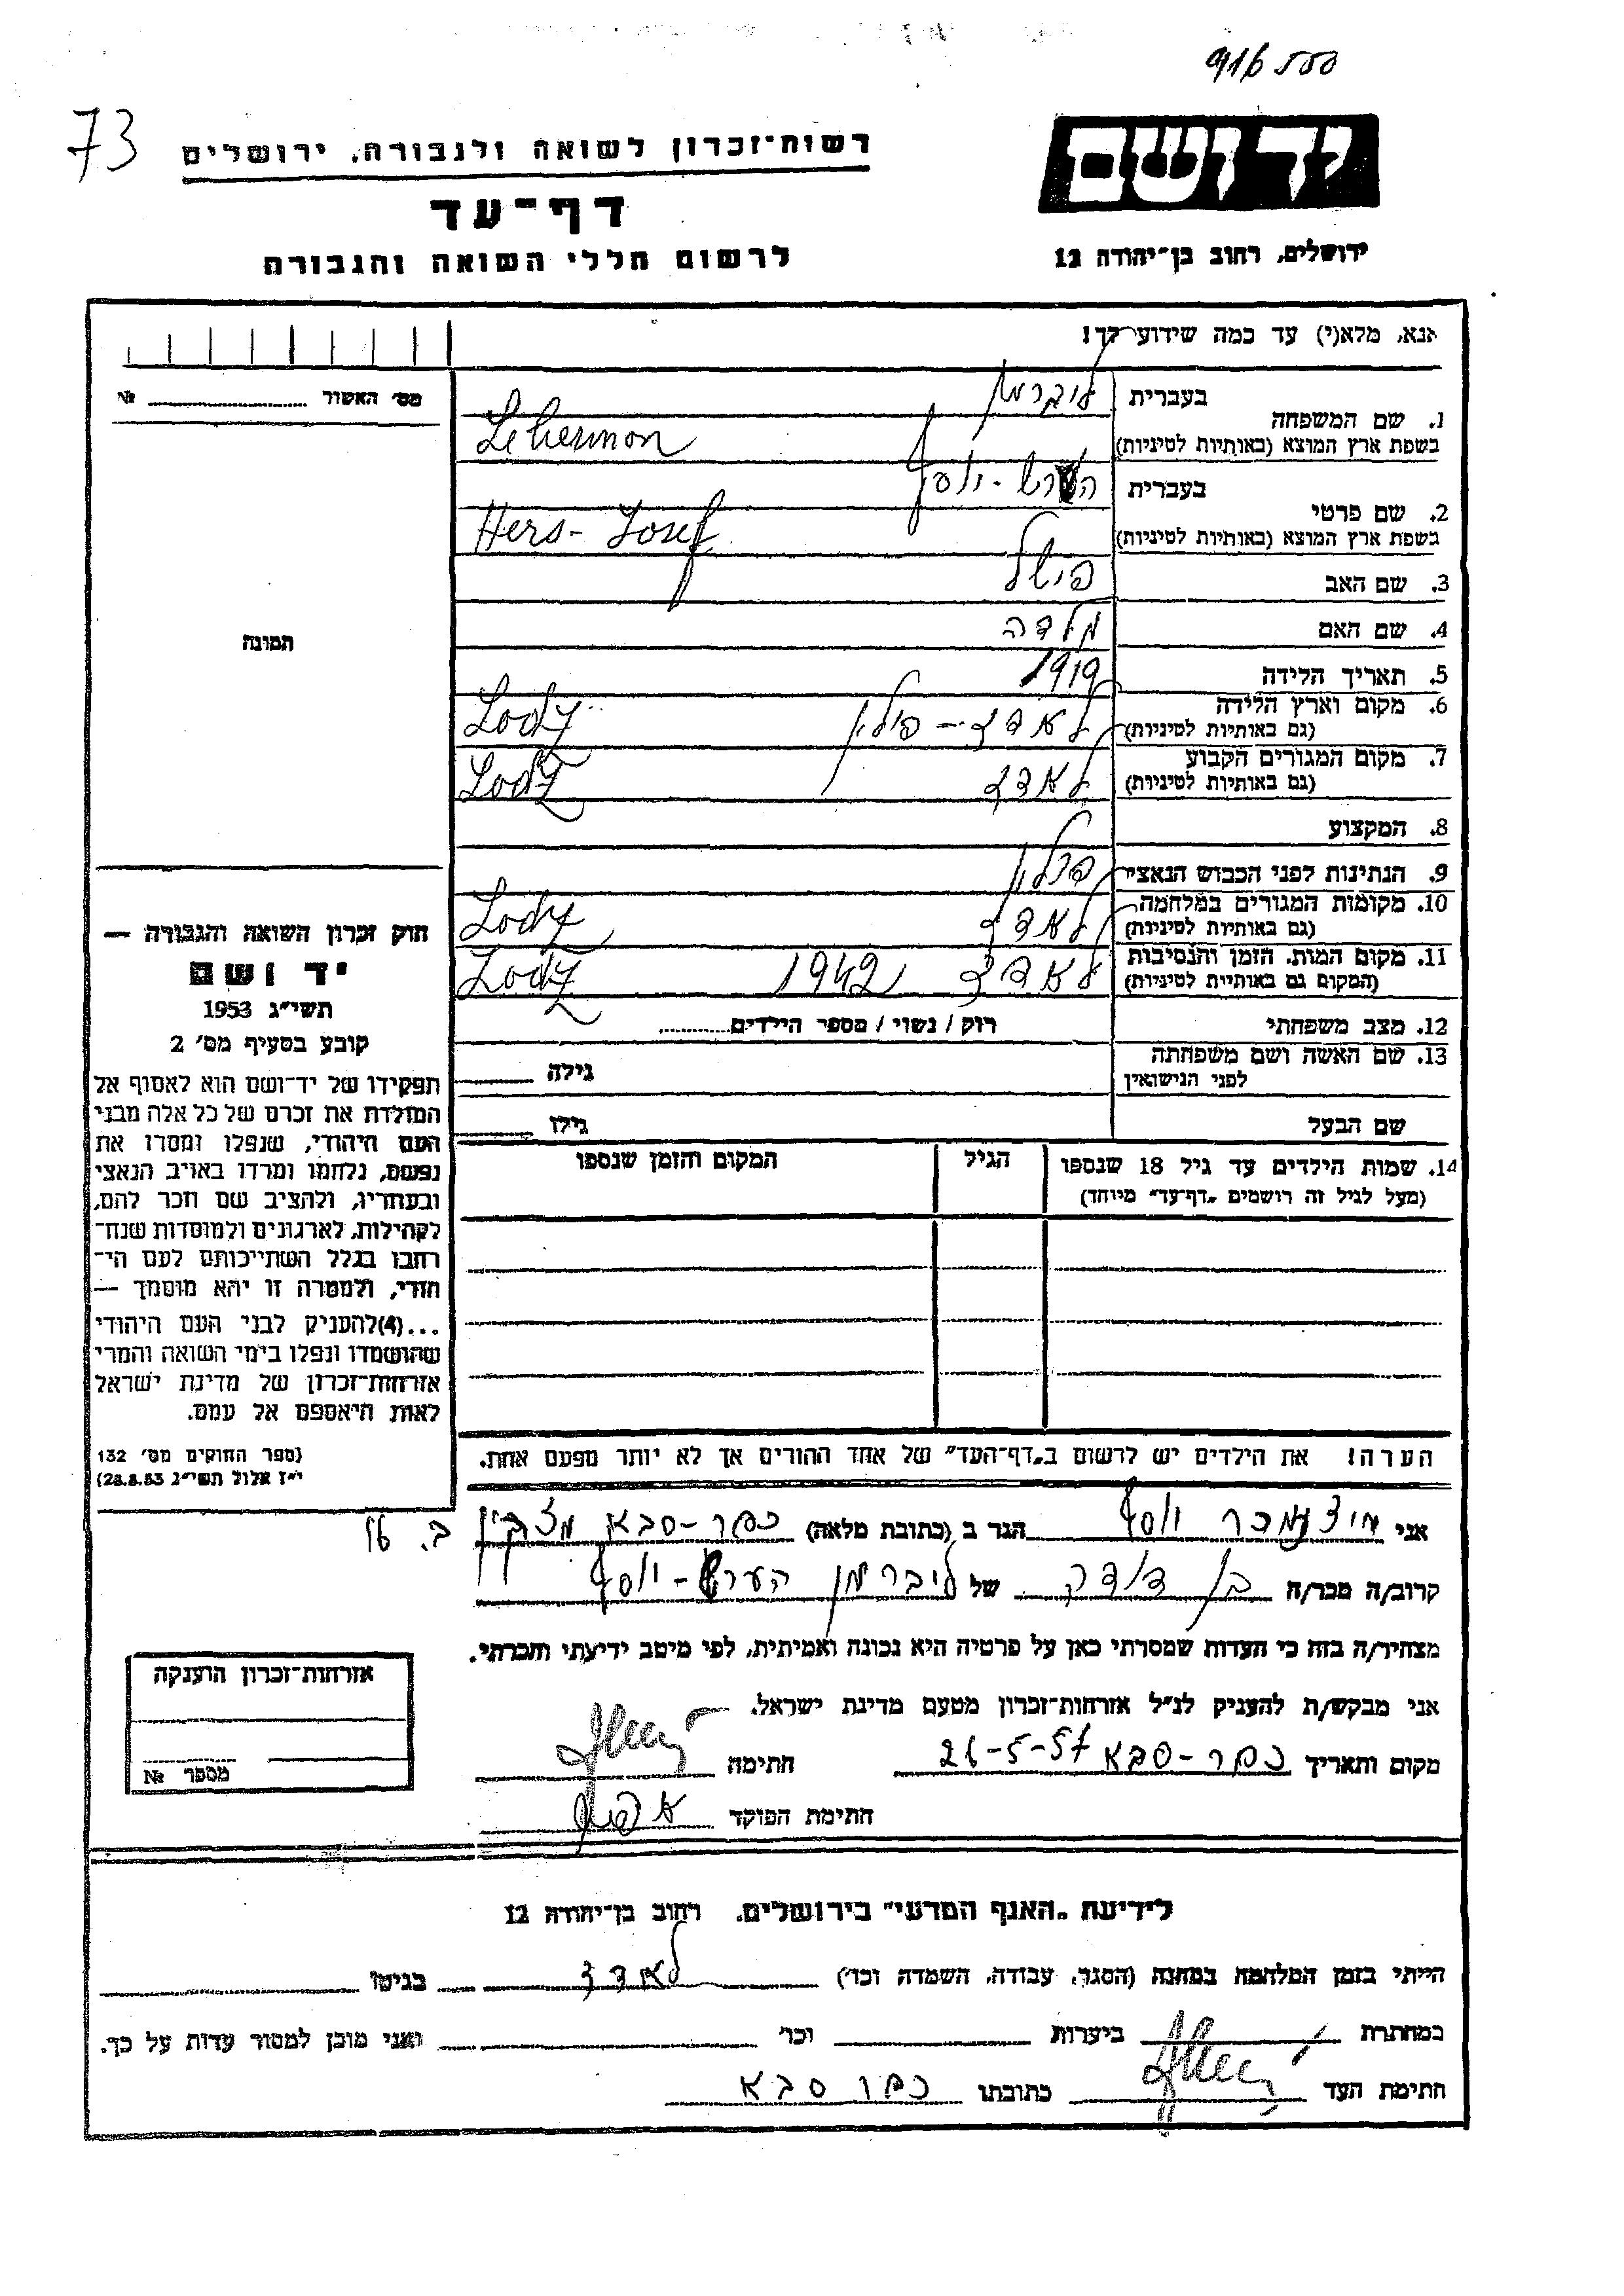 916 500
73
יד ושם
רשות־זכרון לשואה ולגבורה, ירושלים
דף־עד
לרשום חללי השואה והגבורה
ירושלים, רחוב בן־יהודה 12
אנא, מלא(י) עד כמה שידוע לך!
מס׳ האשור № 
1. שם המשפחה בעברית ליברמן
בשפת ארץ המוצא (באותיות לטיניות) Lebermon
2. שם פרטי בעברית הערש - יוסף
בשפת ארץ המוצא (באותיות לטיניות) Hers - Josef
3. שם האב פישל
4. שם האם
5. תאריך הלידה 1919
6. מקום וארץ הלידה
(גם באותיות לטיניות) לאדז - פולין Lodz
7. מקום המגורים הקבוע
(גם באותיות לטיניות) לאדז Lodz
8. המקצוע
9. הנתינות לפני הכבוש הנאצי פולין
10. מקומות המגורים במלחמה
(גם באותיות לטיניות) לאדז Lodz
11. מקום המות, הזמן והנסיבות
(המקום גם באותיות לטיניות) לאדז 1942 Lodz
12. מצב משפחתי רוק / נשוי / מספר הילדים
13. שם האשה ושם משפחתה
לפני הנישואין גילה
שם הבעל גילו
14. שמות הילדים עד גיל 18 שנספו הגיל המקום והזמן שנספו
(מעל לגיל זה רושמים „דף־עד״ מיוחד)
הערה! את הילדים יש לרשום ב„דף־העד״ של אחד ההורים אך לא יותר מפעם אחת.
תמונה
חוק זכרון השואה והגבורה —
יד ושם
תשי״ג 1953
קובע בסעיף מס׳ 2
תפקידו של יד־ושם הוא לאסוף אל
המולדת את זכרם של כל אלה מבני
העם היהודי, שנפלו ומסרו את
נפשם, נלחמו ומרדו באויב הנאצי
ובעוזריו, ולהציב שם וזכר להם,
לקהילות, לארגונים ולמוסדות שנח־
רבו בגלל השתייכותם לעם הי־
הודי, ולמטרה זו יהא מוסמך —
...(4)להעניק לבני העם היהודי
שהושמדו ונפלו בימי השואה והמרי
אזרחות־זכרון של מדינת ישראל
לאות היאספם אל עמם.
(ספר החוקים מס׳ 132
י״ז אלול תשי״ג 28.8.53)
אני יוסף הגר ב (כתובת מלאה) כפר - סבא ב. 16
קרוב/ה מכר/ה בן דודק של ליברמן הערש - יוסף
מצהיר/ה בזה כי העדות שמסרתי כאן על פרטיה היא נכונה ואמיתית, לפי מיטב ידיעתי והכרתי.
אני מבקש/ת להעניק לנ״ל אזרחות־זכרון מטעם מדינת ישראל.
מקום ותאריך כפר - סבא 26-5-57 חתימה
חתימת הפוקד
אזרחות־זכרון הוענקה
מספר №
לידיעת „האגף המדעי״ בירושלים, רחוב בן־יהודה 12
הייתי בזמן המלחמה במחנה (הסגר, עבודה, השמדה וכו׳) לאדז בגיטו
במחתרת ביערות וכו׳ ואני מוכן למסור עדות על כך.
חתימת העד כתובתו כפר סבא